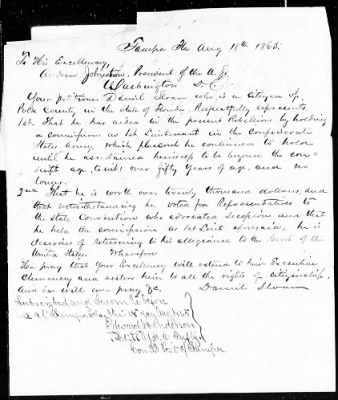 Tampa Fla Aug 18th 1865.
To His Excellency,
Andrew Johnston, President of the U.S.
Washington D.C.
Your petitioner Daniel Sloan who is a citizen of
Polk County in the State of Florida Respectfully represents
1st. That he has aided in the present Rebellion by holding
a commission as 1st Lieutenant in the Confederate
States Army, which he continued to hold
until he ascertained himself to be beyond the con-
script age, to wit: over fifty years of age, and no
longer.
2nd That he is worth over twenty thousand dollars, and
that notwithstanding he voted for Representatives to
the State Convention who advocated secession and that
he held the commission as 1st Lieut aforesaid, he is
desirous of returning to his allegiance to the Govt of the
United States. Wherefore
He prays that your Excellency will extend to him Executive
Clemency and restore him to all the rights of citizenship.
And he will ever pray &c.
Daniel Sloan
Subscribed and Sworn to before
me at Tampa Fla this 18 day Aug 1865
Edward Anderson
Com'g Post of Tampa